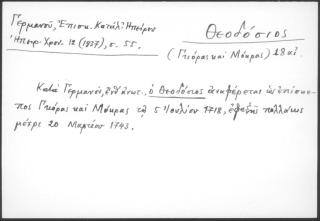 Γερμανοῦ, Ἐπισκ. Κατάλ. Ἠπείρου
Ἠπειρ. Χρον. 12 (1937), σ. 55.
Θεοδόσιος
(Γκιόρας καὶ Μόκρας) 18 αἰ.
Κατὰ Γερμανόν, ἔνθ' ἀνωτ., ὁ Θεοδόσιος ἀναφέρεται ὡς ἐπίσκο-
πος Γκιόρας καὶ Μόκρας τῷ 5 Ἰουλίου 1718,
μέχρι 20 Μαρτίου 1743.